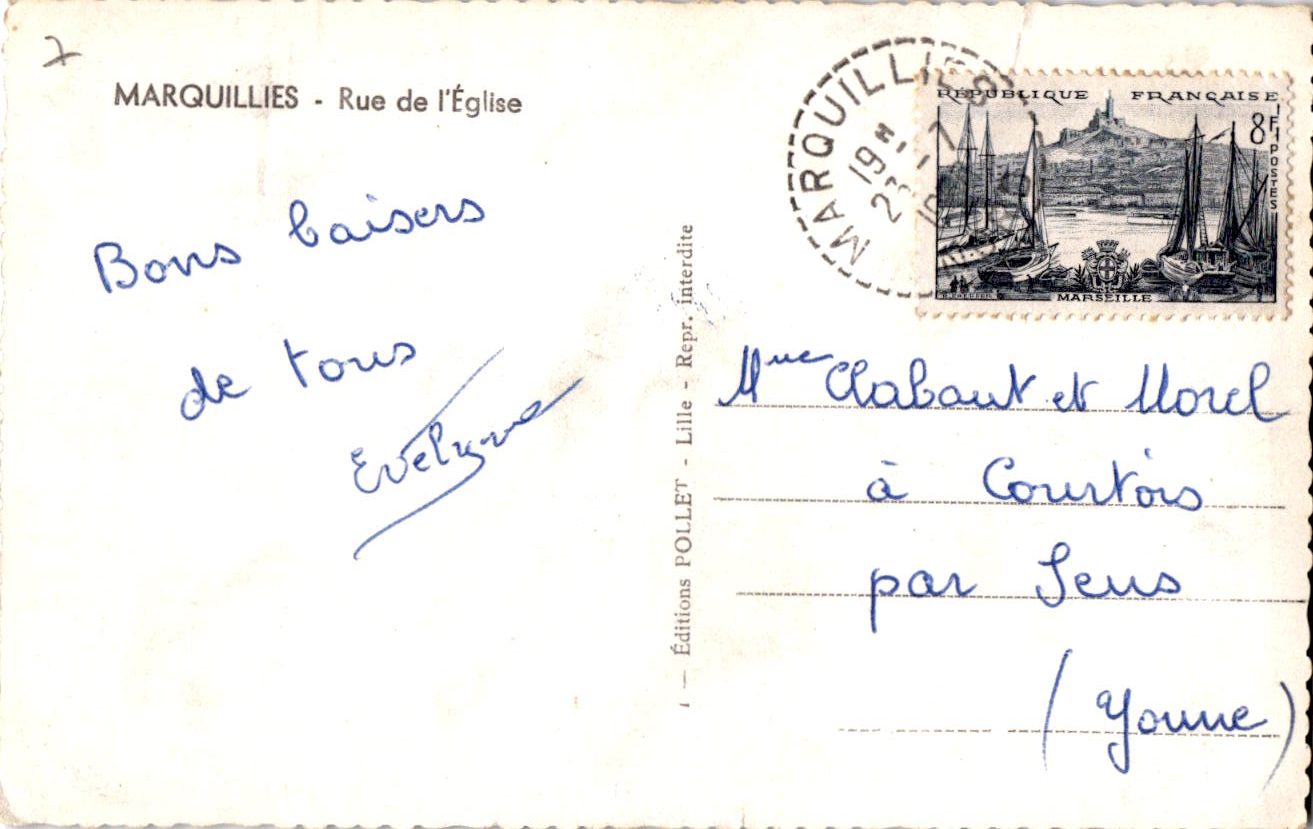 MARQUILLIES - Rue de l'Église
Bons baisers
de tous
Evelyne
— Éditions POLLET - Lille - Repr. interdite
MARQUILLIES
19H
RÉPUBLIQUE FRANÇAISE
8F
POSTES
MARSEILLE
Mme Clabaut et Morel
à Courtois
par Sens
(Yonne)